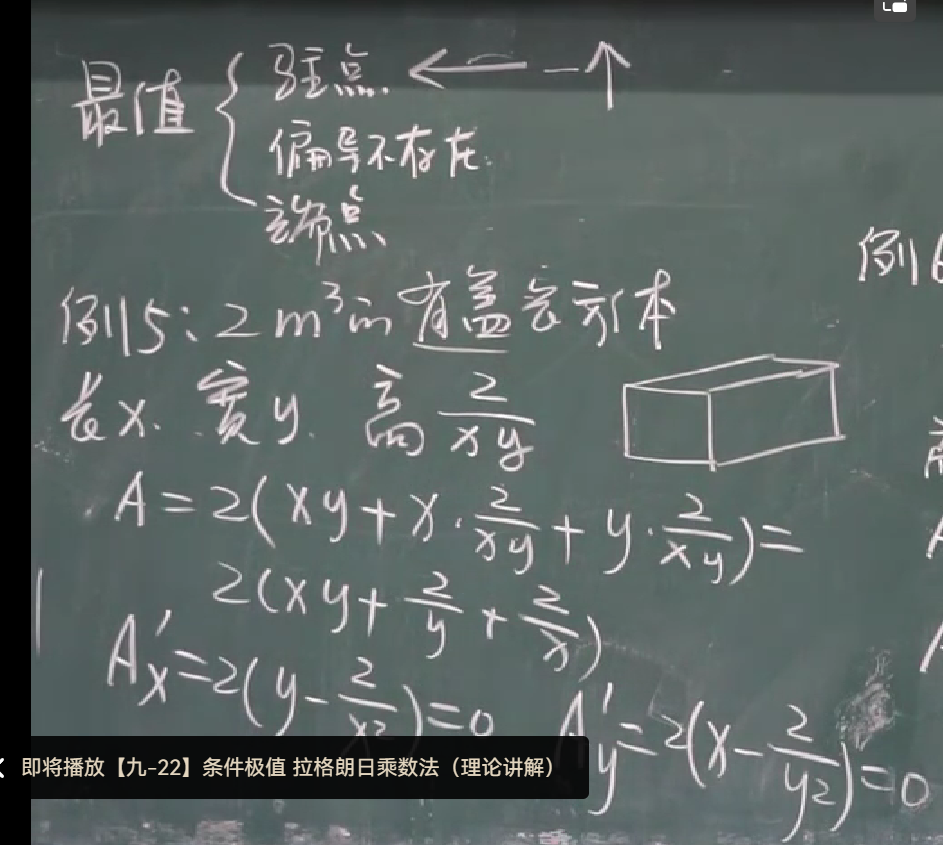 最值 { 驻点. ← — ↑
偏导不存在.
端点
例5: 2m³的有盖长方体
例
长x. 宽y. 高 2/xy
A=2(xy+x·2/xy+y·2/xy)=
2(xy+2/y+2/x)
A'x=2(y-2/x²)=0 A'y=2(x-2/y²)=0
即将播放【九-22】条件极值 拉格朗日乘数法（理论讲解）